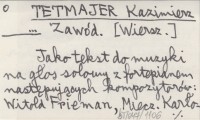 o TETMAJER Kazimierz
... Zawód. [Wiersz.]
Jako tekst do muzyki
na głos solowy z fortepianem
następujących kompozytorów:
Witold Frieman, Miecz. Karło-